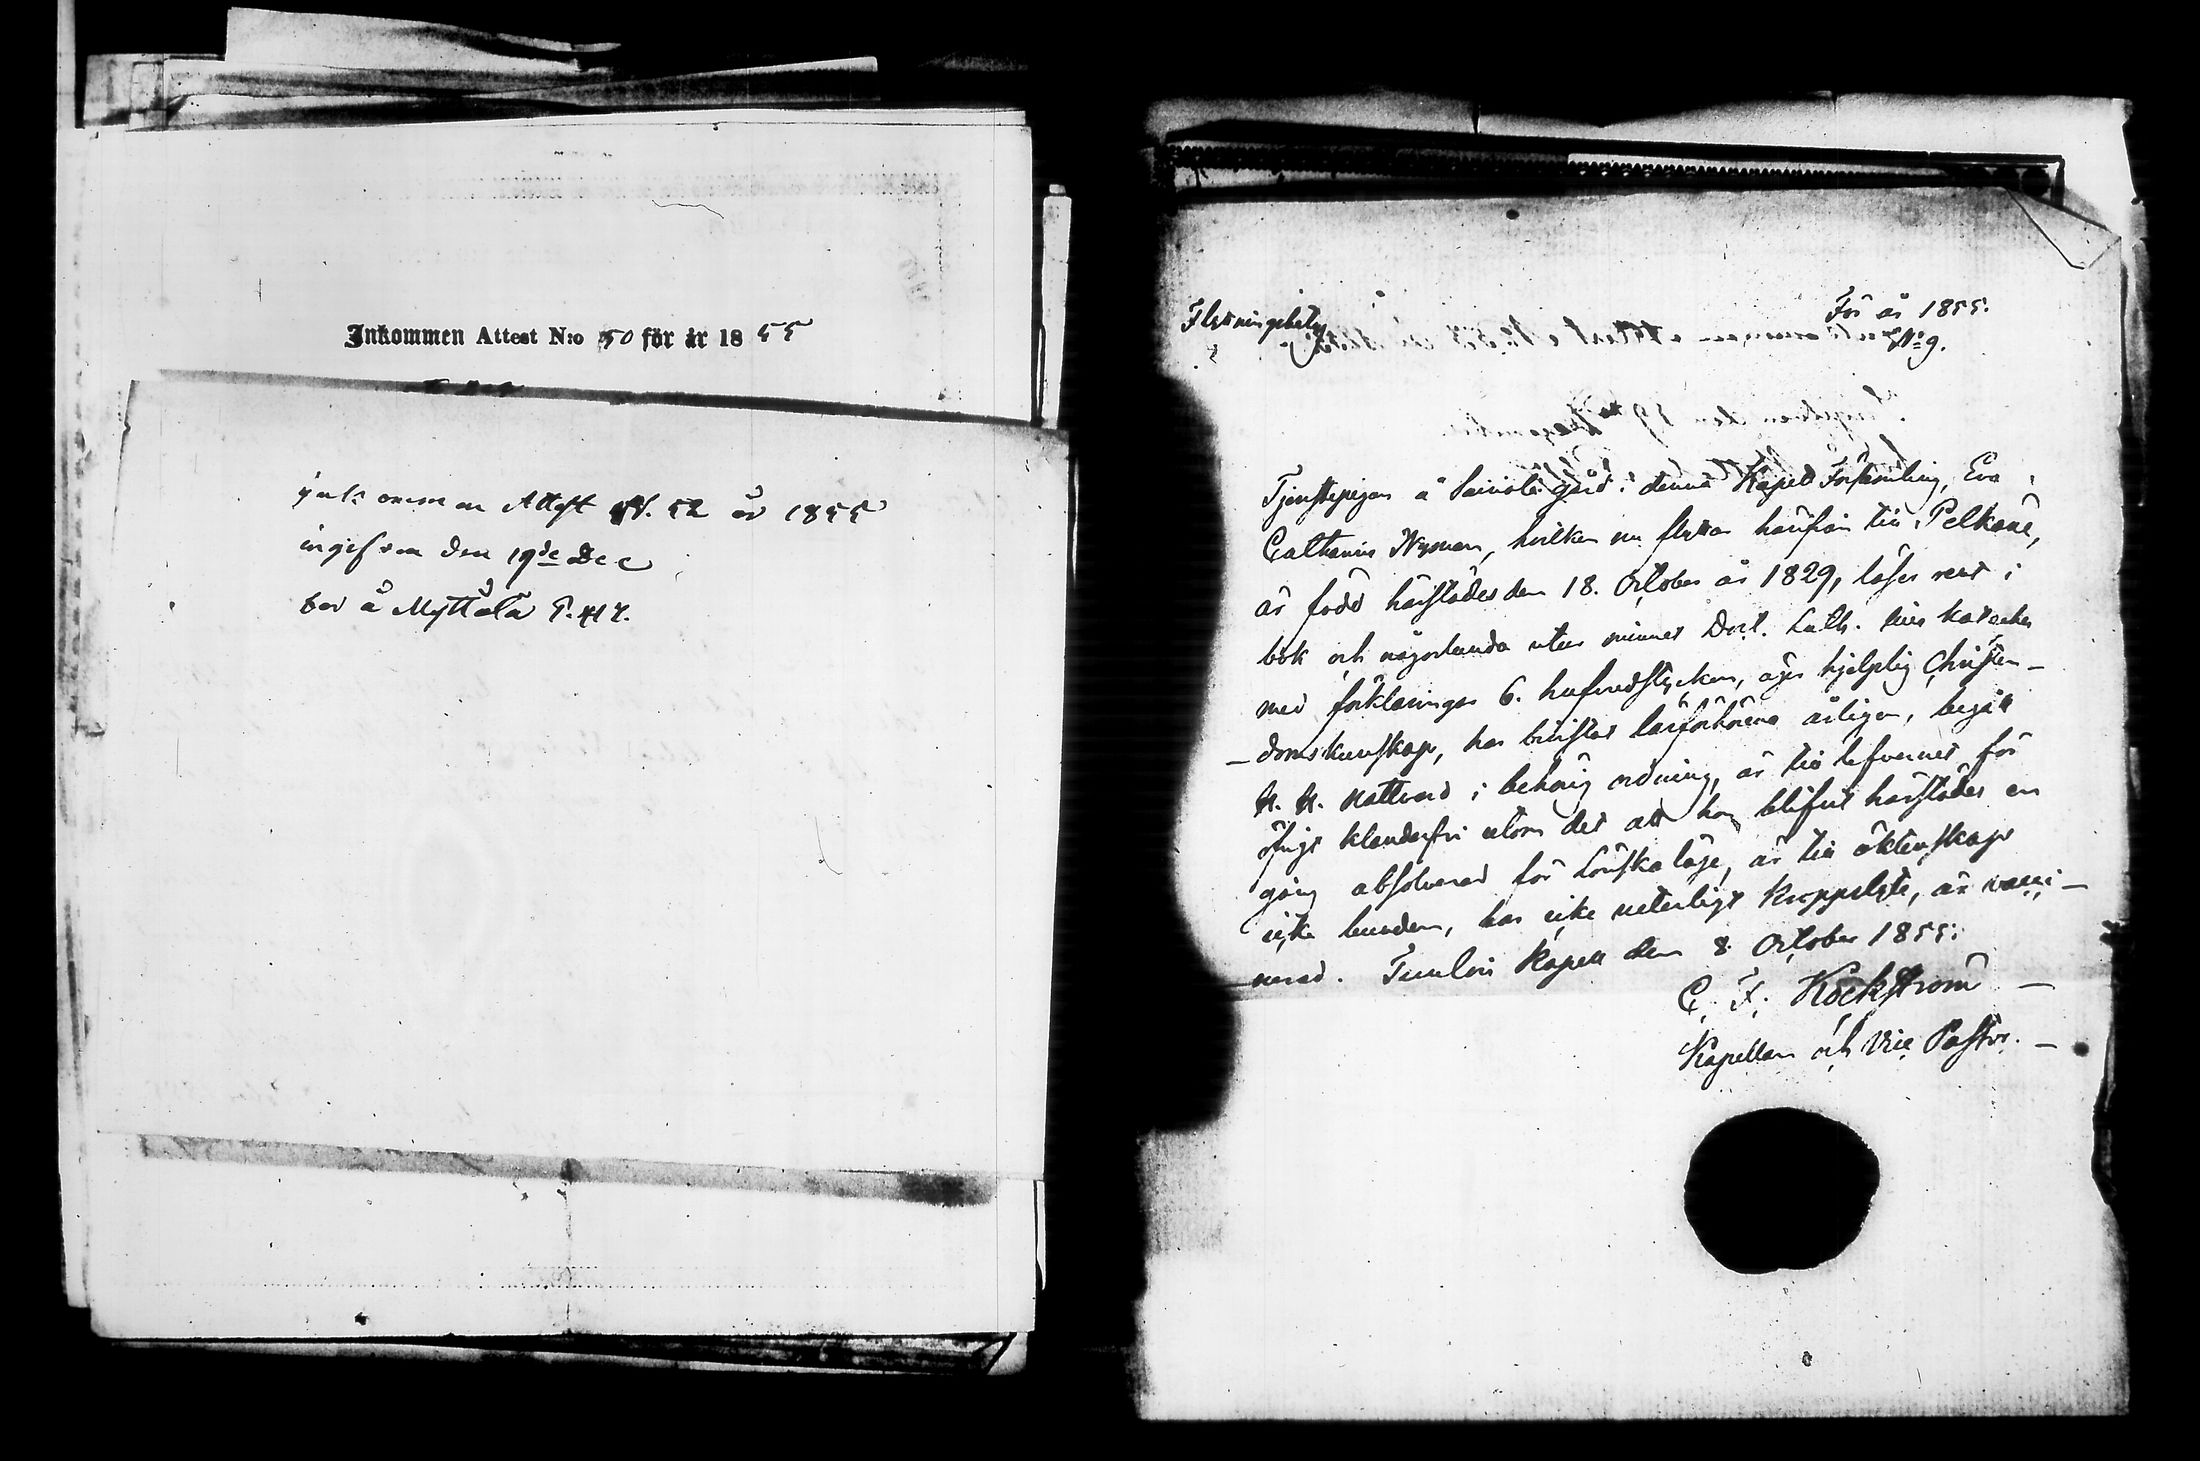 Inkommen Attest N:o 50 för år 1855
Inkommen Attest N. 52 år 1855
ingifven den 19de Dec
bor å Myttälä P. 417.
Flyttningsbetyg
För år 1855.
N:o 9.
Tjenstepigan å gård i denna Kapell Församling, Eva
Catharina Nyman, hvilken nu flyttar härifrån till Pelkäne,
är född härstädes den 18. October år 1829, läser rent i
bok och någorlunda utur minnet Doct. Luth. lilla kateches
med förklaringar 6. hufvudstycken, äger hjelplig Christen-
-domskunskap, har bivistat läsförhören årligen, begått
H. H. Nattvard i behörig ordning, är till lefvernet för
öfrigt klanderfri utom det att hon blifvit härstädes en
gång absolverad för Lönskaläge, är till äktenskap
icke bunden, har icke veterligt kroppslyte, är vacci-
nerad. Tuulois Kapell den 8 October 1855.
C. F. Kockström
Kapellan och Vice Pastor.